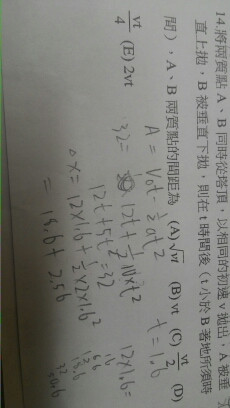 14.將兩質點 A、B 同時從塔頂，以相同的初速 v 拋出，A 被垂
直上拋，B 被垂直下拋，則在 t 時間後（t 小於 B 著地所須時
間），A、B 兩質點的間距為 (A)√vt (B) vt (C) vt/2 (D)
vt/4 (E) 2vt
A = V₀t - ½at²
t = 1.6
32 = 12t + ½10xt²
12t + 5t² = 32
12x1.6 =
x = 12x1.6 + ½x2x1.6²
= 19.6 + 2.56